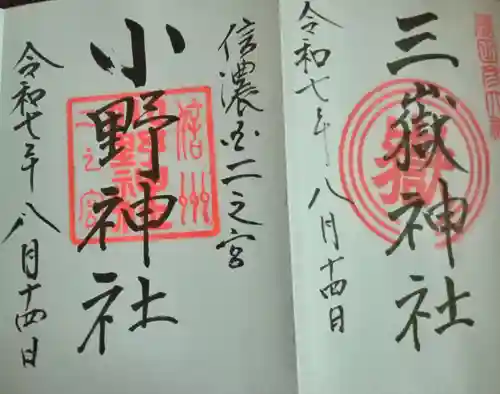 三嶽神社
令和七年八月十四日
信濃国二之宮
小野神社
令和七年八月十四日
信州
二之宮